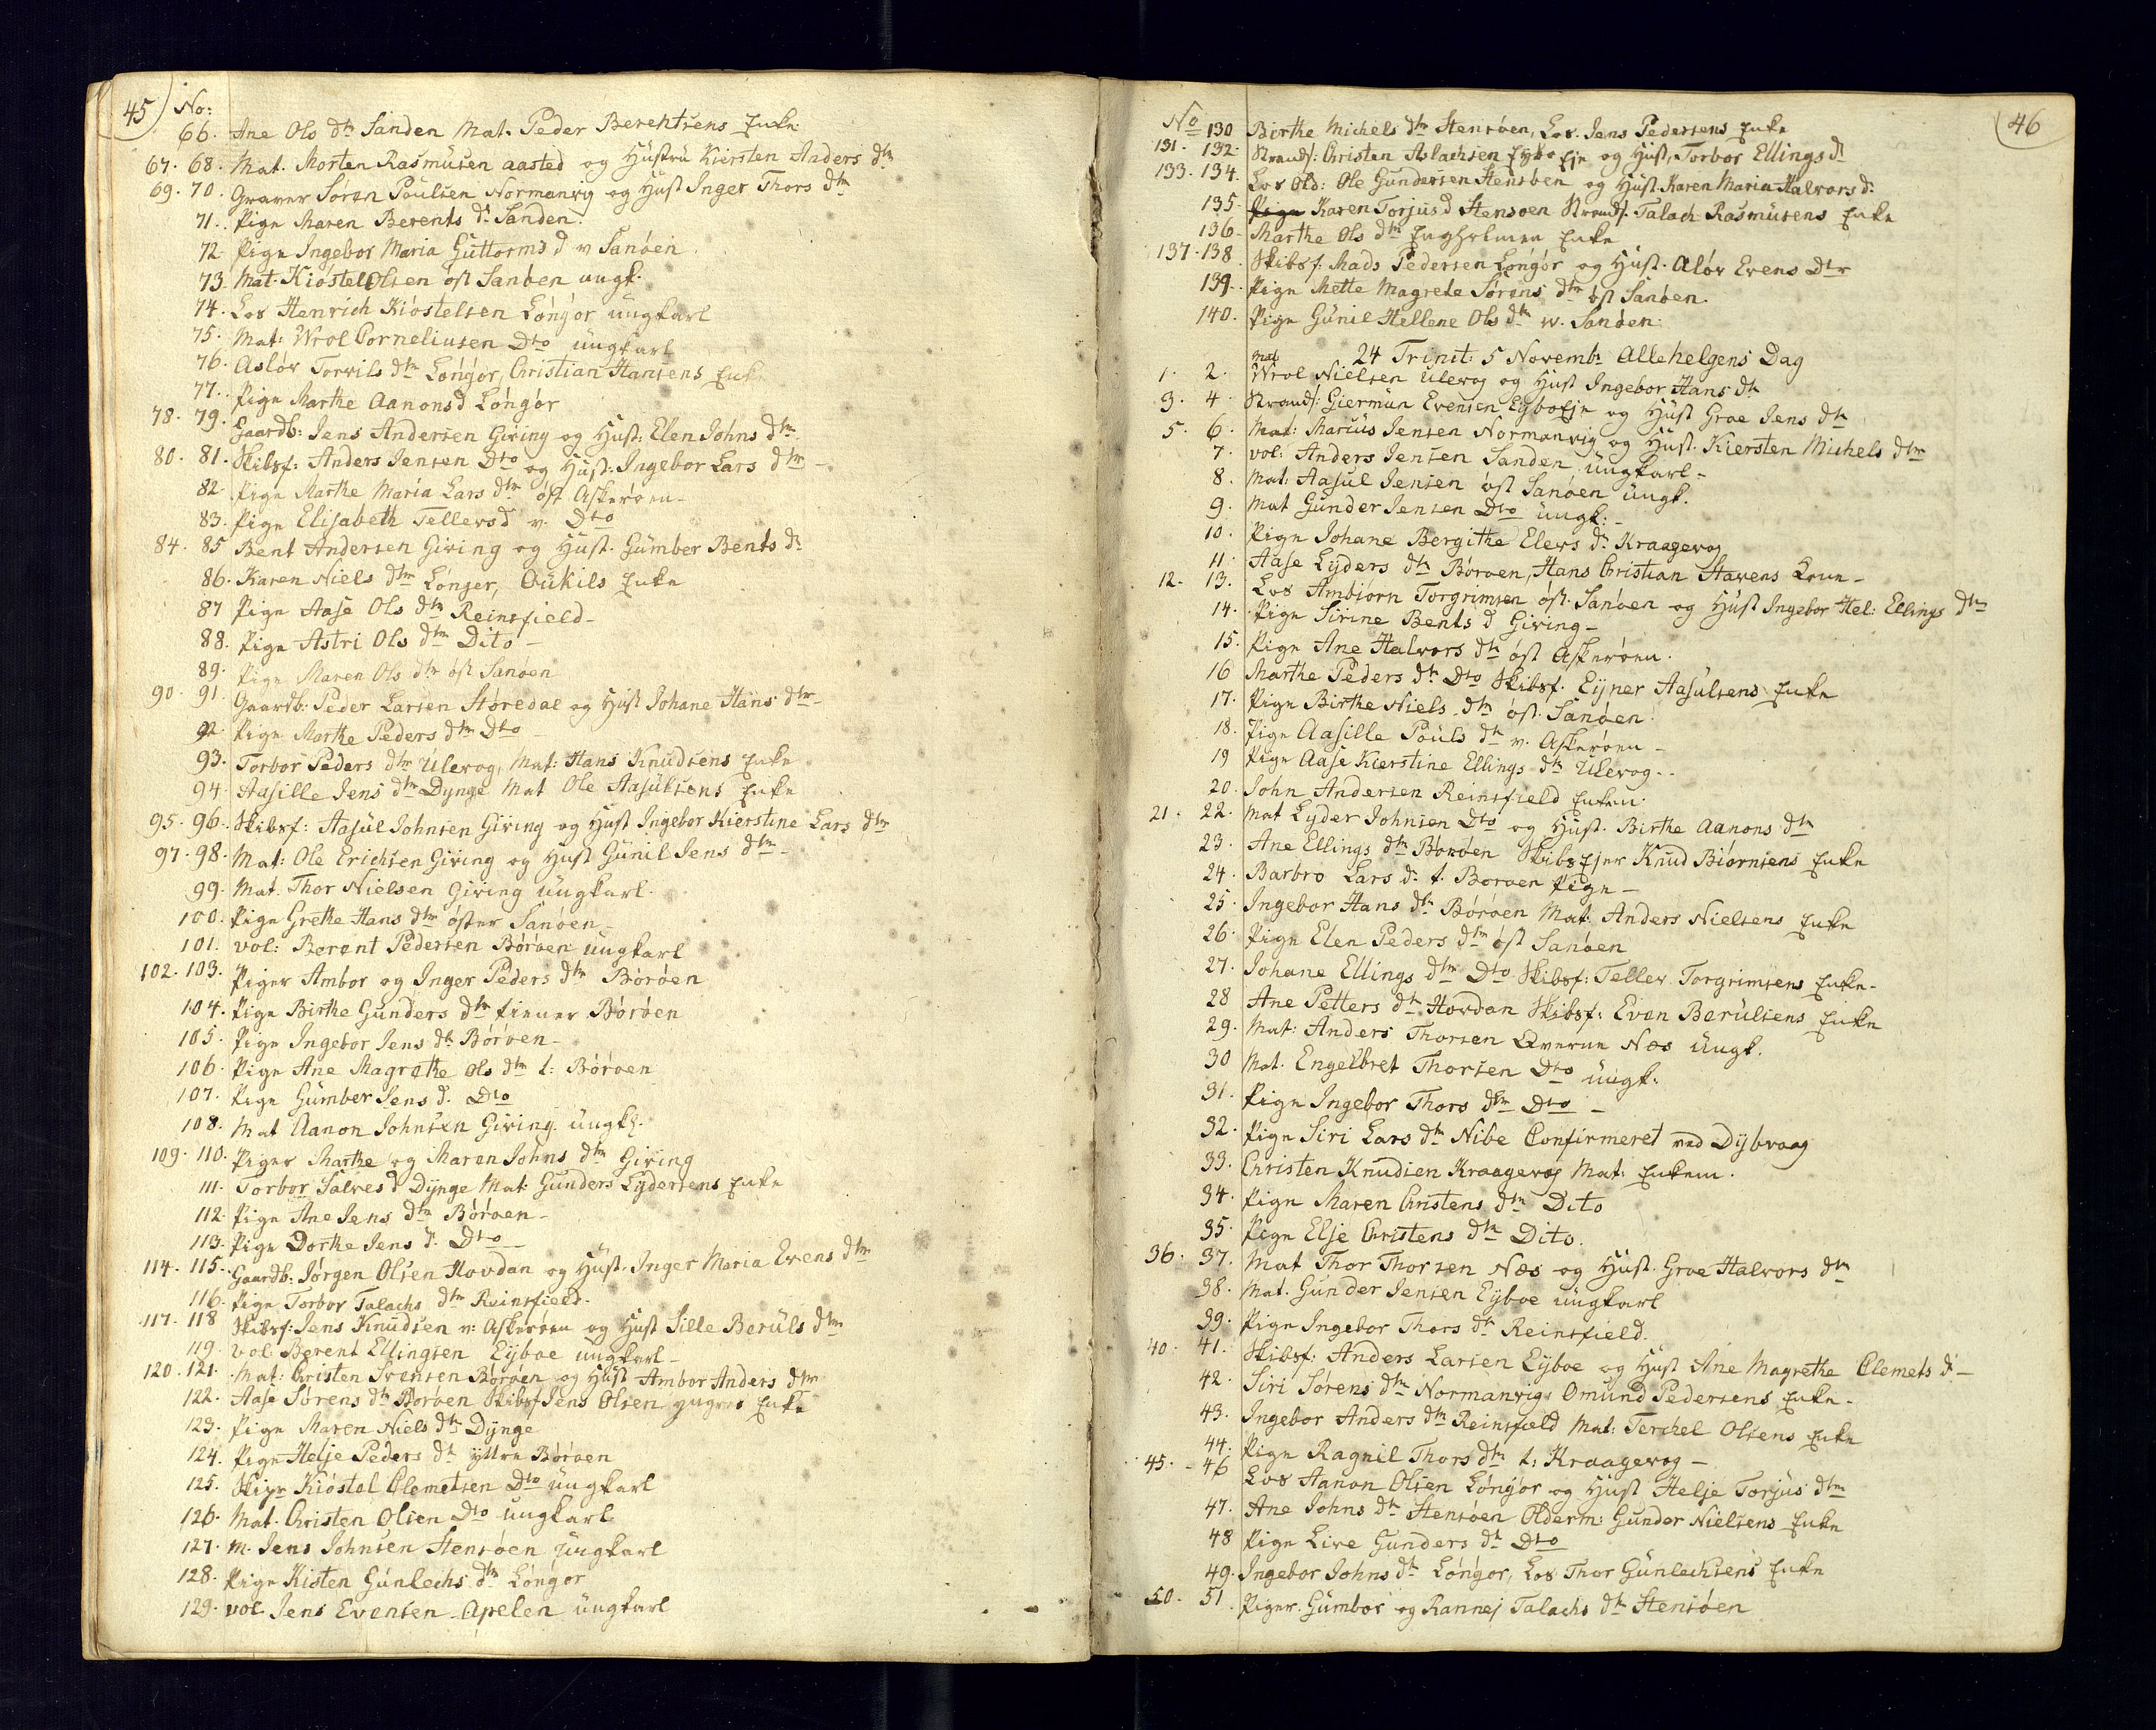 45 No:
66. Ane Ols dtr Sanden Mat. Peder Berentsens Enke
67. 68. Mat. Morten Rasmusen Aasted og Hustru Kiersten Anders dtr
69. 70. Graver Søren Poulsen Normanvig og Hust Inger Thors dtr
71. Pige Maren Berents dr Sanden.
72. Pige Ingebor Maria Guttorms d v Sanöen
73. Mat. Kiöstel Olsen öst Sanöen ungk.
74. Los Henrich Kiöstelsen Löngör ungkarl
75. Mat: Wrol Corneliusen Dto ungkarl
76. Aslöv Torvils dtr Löngör, Christian Hansens Enke
77. Pige Marthe Aanonsd Löngör
78. 79. Gaardb: Jens Andersen Giving og Hust: Elen Johns dtr
80. 81. Skibsf: Anders Jensen Dto og Hust: Ingebor Lars dtr -
82. Pige Marthe Maria Lars dtr öst Askeröen -
83. Pige Elisabeth Tellevsd v. Dto
84. 85 Bent Andersen Giving og Hust. Gumber Bents dr
86. Karen Niels dtr Lönger, Oukils Enke
87 Pige Aase Ols dtr Reinsfield -
88. Pige Astri Ols dtr Dito -
89. Pige Maren Ols dtr öst Sanöen
90. 91. Gaardb: Peder Larsen Støredal og Hust Johane Hans dtr -
92. Pige Marthe Peders dtr Dto -
93. Torbor Peders dtr Ulevog, Mat: Hans Knudsens Enke
94. Aasille Jens dtr Dynge Mat Ole Aasulsens Enke
95. 96. Skibsf: Aasul Johnsen Giving og Hust Ingebor Kierstine Lars dtr
97. 98. Mat: Ole Erichsen Giving og Hust Gunil Jens dtr -
99. Mat. Thor Nielsen Giving ungkarl.
100. Pige Grethe Hans dtr öster Sanöen -
101. vol: Berent Pedersen Böröen ungkarl
102. 103. Piger Ambor og Inger Peders dtr Böröen
104. Pige Birthe Gunders dtr Böröen
105. Pige Ingebor Jens dr Böröen -
106. Pige Ane Magrethe Ols dtr t: Böröen
107. Pige Gumber Jens d. Dto
108. Mat Aanon Johnsen Giving. ungk.
109. 110. Piger Marthe og Maren Johns dtr Giving
111. Torbor Salves d Dynge Mat. Gunders Lydersens Enke
112. Pige Ane Jens dtr Böröen -
113. Pige Dorthe Jens d. Dto -
114. 115. Gaardb: Jørgen Olsen Hovdan og Hust. Inger Maria Evens dtr
116. Pige Torbor Talachs dtr Reinsfield.
117. 118 Skibsf: Jens Knudsen v: Askeröen og Hust Sille Beruls dtr
119. vol: Berent Ellingsen Eyboe ungkarl -
120. 121. Mat: Christen Svensen Böröen og Hust Ambor Anders dtr
122. Aase Sørens dtr Böröen Skibsf Jens Olsen yngres Enke
123. Pige Maren Niels dtr Dynge
124. Pige Helje Peders dtr yttre Böröen
125. Kiöstol Clemetsen Dto ungkarl
126. Mat. Christen Olsen Dto ungkarl
127. M. Jens Johnsen Stensöen ungkarl
128. Pige Kisten Gunlechs dtr Löngör
129. vol. Jens Evensen Apelen ungkarl
46
No 130 Birthe Michels dtr Stensöen, Los. Jens Pedersens Enke
131. 132. Strands: Christen Aslachsen Eyboe Eje og Hust, Torbor Ellings d
133. 134. Los Old: Ole Gundersen Stensöen og Hust. Karen Maria Halvors d:
135. Pige Karen Torjusd Stensoen Strands. Talach Rasmusens Enke
136. Marthe Ols dtr Engholmen Enke
137. 138. Skibsf. Mads Pedersen Löngör og Hust. Alöv Evens Dtr
139. Pige Mette Magrete Sørens dtr öst Sanöen.
140. Pige Gunil Hellene Ols dtr w. Sanöen.
24 Trinit: 5 Novembr Allehelgens Dag
1. 2. Mat Wrol Nielsen Ulevog og Hust Ingebor Hans dtr
3. 4. Strands: Giermun Evensen Eyboeje og Hust Groe Jens dtr
5. 6. Mat: Marius Jensen Normanvig og Hust. Kiersten Michels dtr
7. vol: Anders Jensen Sanden ungkarl -
8. Mat: Aasul Jensen öst Sanöen ungk.
9. Mat Gunder Jensen Dto ungk: -
10. Pige Johane Bergithe Elevs dr Kraagevog
11. Aase Lyders dtr Boroen, Hans Christian Havens Kone -
12. 13. Los Ambiörn Torgrimsen öst. Sanöen og Hust Ingebor Hel: Ellings dtr
14. Pige Sirine Bents d Giving -
15. Pige Ane Halvors dtr öst Askeröen.
16 Marthe Peders dtr Dto Skibsf. Ejner Aasulsens Enke
17. Pige Birthe Niels dtr öst. Sanöen
18. Pige Aasille Pouls dtr v. Askeröen -
19 Pige Aase Kierstine Ellings dtr Ulevog -
20. John Andersen Reinsfield Enkem.
21. 22. Mat Lyder Johnsen Dto og Hust. Birthe Aanons dtr
23. Ane Ellings dtr Böröen Skibsejer Knud Biörnsens Enke
24. Barbro Lars d. t. Boroen Pige -
25. Ingebor Hans dtr Böröen Mat. Anders Nielsens Enke
26. Pige Elen Peders dtr öst Sanöen
27. Johane Ellings dtr Dto Skibsf: Tellev Torgrimsens Enke -
28 Ane Petters dtr Hovdan Skibsf: Even Berulsens Enke
29. Mat: Anders Thorsen Qverne Næs ungk.
30 Mat. Engelbret Thorsen Dto ungk.
31. Pige Ingebor Thors dtr Dto -
32. Pige Siri Lars dtr Nibe Confirmeret ved Dybvaag
33. Christen Knudsen Kraagevog Mat: Enkem.
34. Pige Maren Christens dtr Dito
35. Pige Elje Christens dtr Dito.
36. 37. Mat Thor Thorsen Næs og Hust. Groe Halvors dtr
38. Mat. Gunder Jensen Eyboe ungkarl
39. Pige Ingebor Thors dtr Reinsfield.
40. 41. Skibsf: Anders Larsen Eyboe og Hust Ane Magrethe Clemets d. -
42. Siri Sørens dtr Normanvig Omund Pedersens Enke -
43. Ingebor Anders dtr Reinsfield Mat: Terchel Olsens Enke
44. Pige Ragnil Thors dtr t: Kraagevog -
45. 46 Los Aanon Olsen Löngör og Hust Helje Torjus dtr
47. Ane Johns dtr Stensöen Olderm: Gunder Nielsens Enke
48 Pige Live Gunders dtr Dto
49. Ingebor Johns dtr Löngör, Los Thor Gunlechsens Enke
50. 51. Piger. Gumbor og Rannej Talachs dtr Stensöen